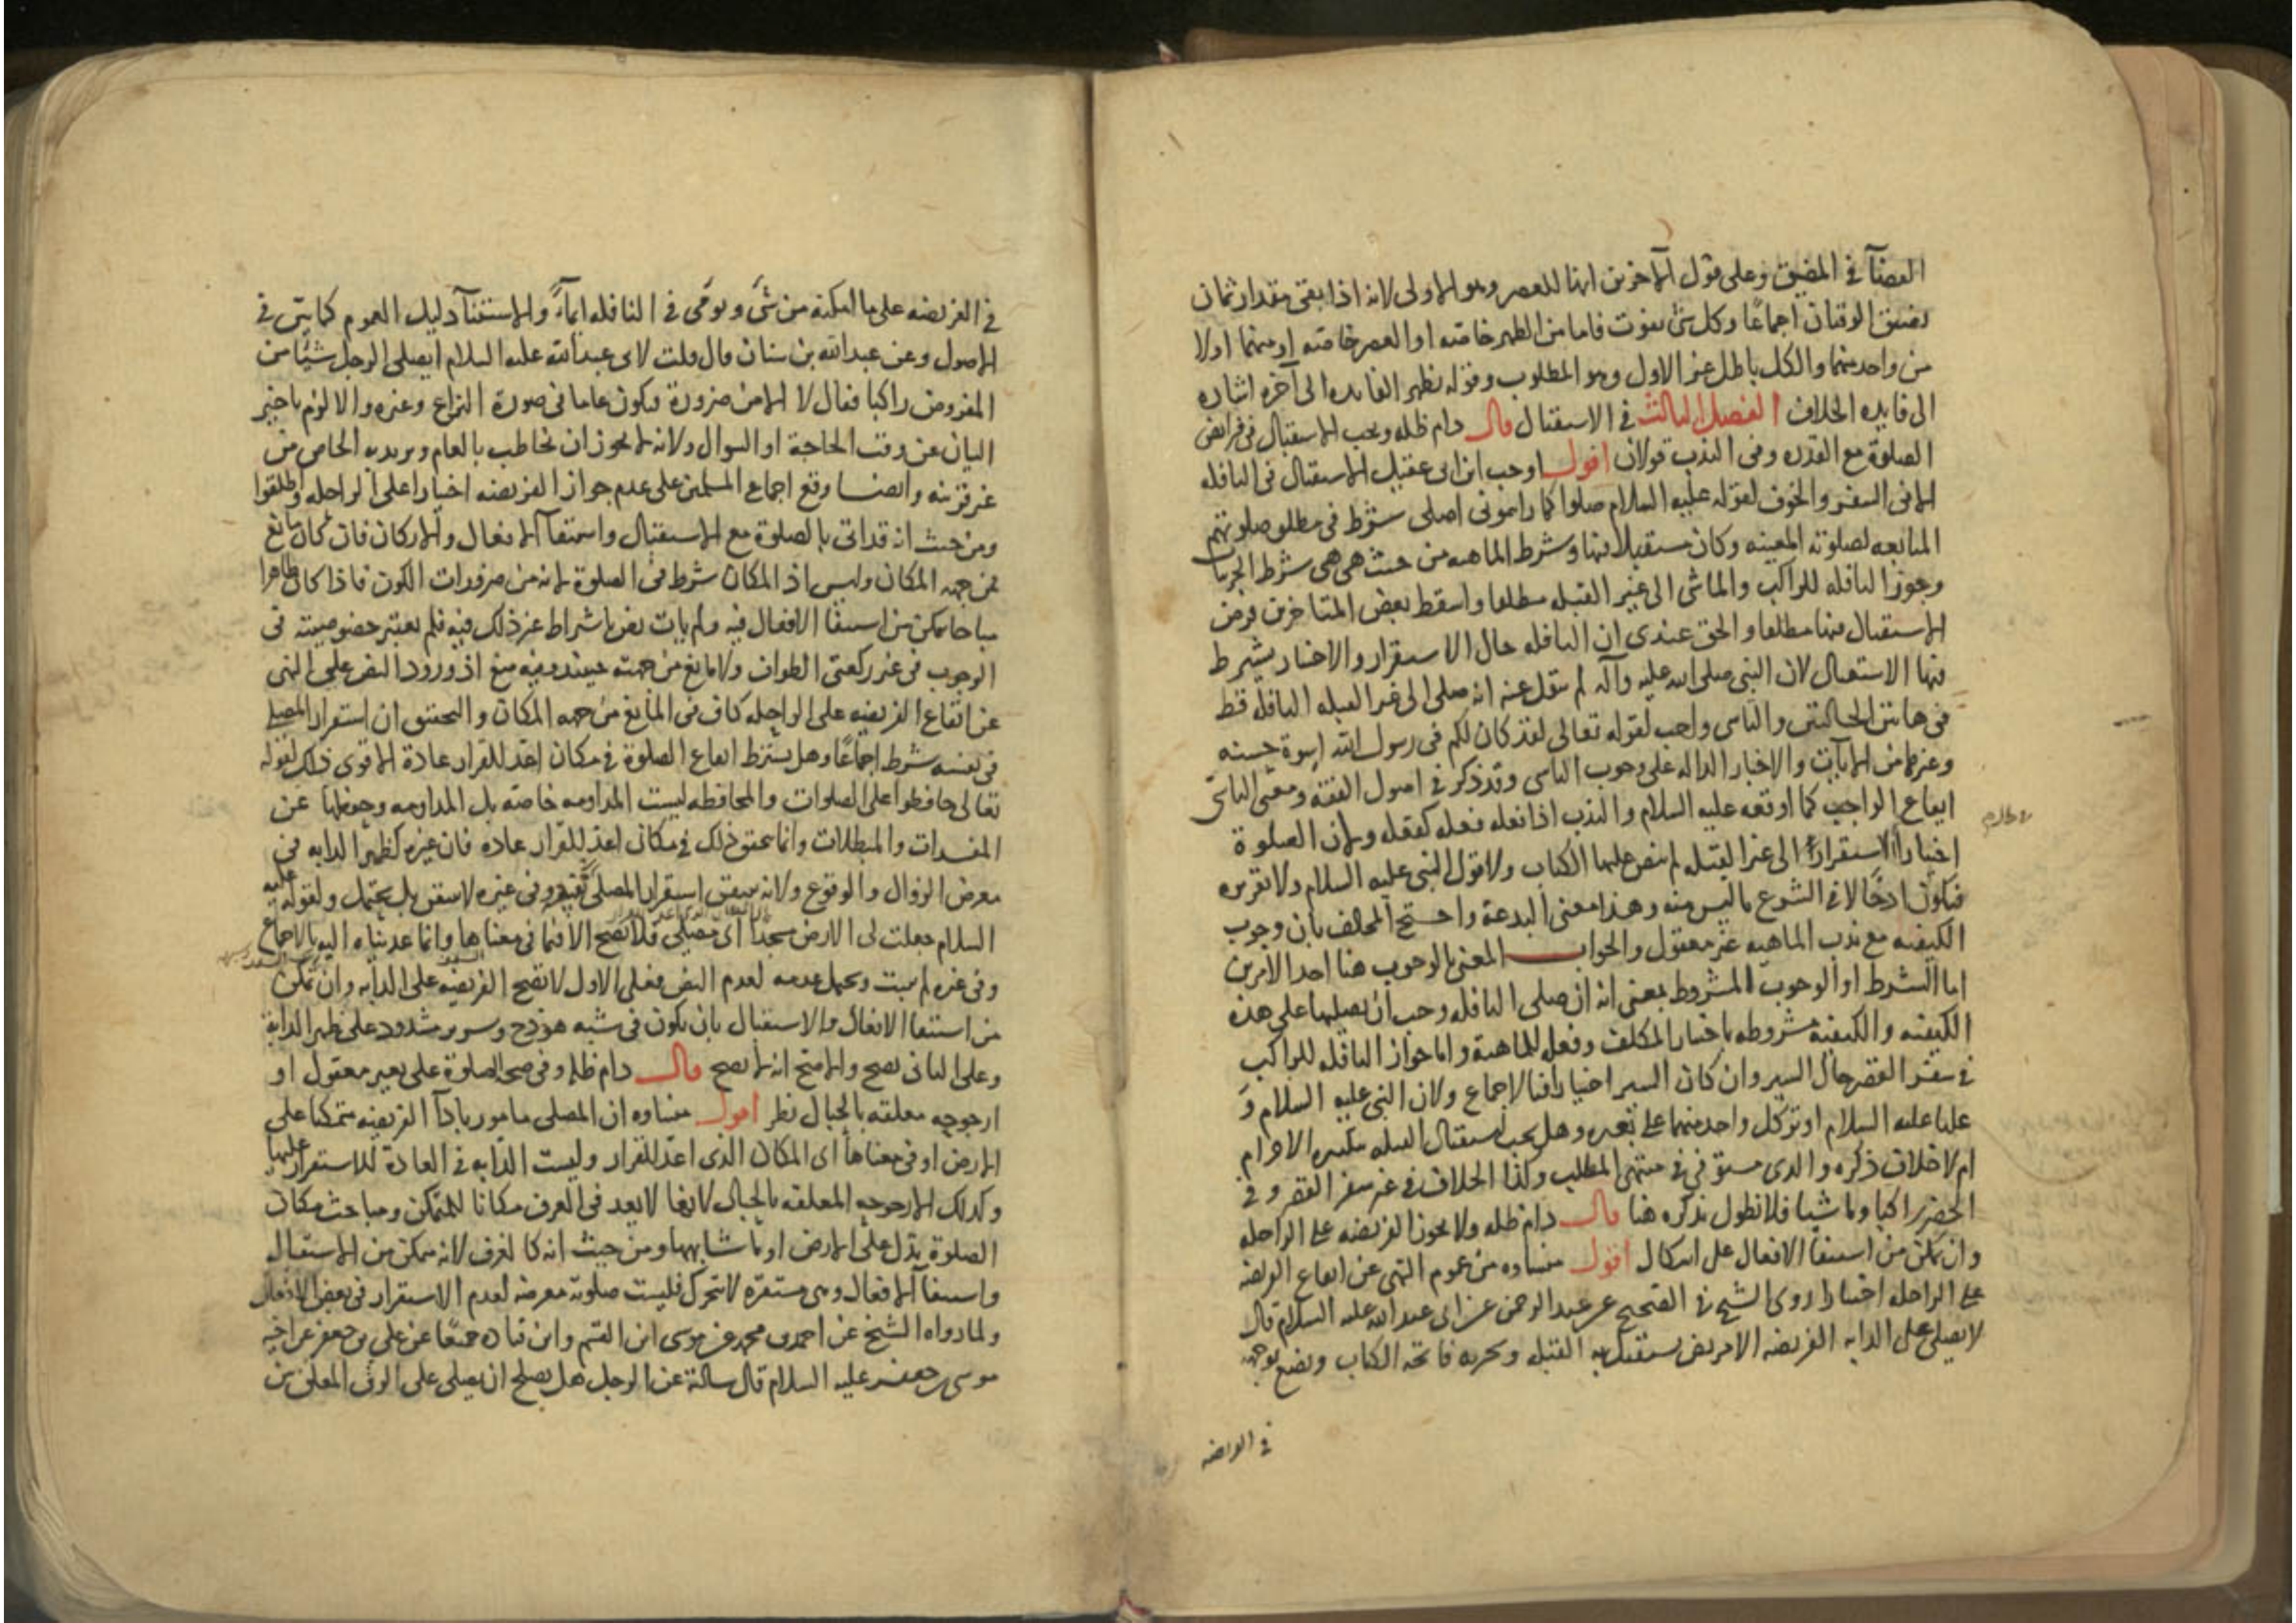 القضآ في المضيق وعلى قول الآخرين انها للعصر وهو الاولى لانه اذا بقى مقدار ثمان
تضيق الوقتان اجماعًا وكل شئ يفوت فاما من الظهر خاصته او العصر خاصته او منهما اولا
من واحد منهما والكل باطل غير الاول وهو المطلوب وقوله تظهر الفايده الى آخره اشاره
الى فايده الخلاف الفصل الثالث في الاستقبال قال دام ظله ويجب الاستقبال في فرايض
الصلوة مع القدره وفى الندب قولان اقول اوجب ابن ابى عقيل الاستقبال فى النافله
الا فى السفر والخوف لقوله عليه السلام صلوا كما رايتمونى اصلى شرط فى مطلق صلوتهم
المتابعه لصلوته المعينه وكان مستقبلا فيها وشرط الماهيه من حيث هى هى شرط الجزئيات
وجوز النافله للراكب والماشى الى غير القبله مطلقا واسقط بعض المتاخرين فرض
الاستقبال فيها مطلقا والحق عندى ان النافله حال الاستقرار والاختيار يشترط
فيها الاستقبال لان النبى صلى الله عليه وآله لم ينقل عنه انه صلى الى غير القبله النافله قط
فى هاتين الحالتين والتاسى واجب لقوله تعالى لقد كان لكم فى رسول الله اسوة حسنه
وغيرها من الآيات والاخبار الداله على وجوب التاسى وقد ذكر فى اصول الفقه ومعنى التاسى
ايقاع الواجب كما اوقعه عليه السلام والندب اذا فعله فعله كفعله ولان الصلوة
اختيارا استقرارا الى غير القبله لم ينص عليها الكتاب ولا قول النبى عليه السلام ولا تقريره
فيكون ادخالا فى الشرع ما ليس منه وهذا معنى البدعة واحتج المخالف بان وجوب
الكيفيه مع ندب الماهيه غير معقول والجواب المعنى بالوجوب هنا احد الامرين
اما الشرط او الوجوب المشروط بمعنى انه ان صلى النافله وجب ان يصليها على هذه
الكيفيه والكيفية مشروطه باختيار المكلف وفعله للماهية واما جواز النافله للراكب
فى سفر القصر حال السير وان كان السير اختيارا فبالاجماع ولان النبى عليه السلام وَ
عليا عليه السلام اوتر كل واحد منهما على بعيره وهل يجب استقبال القبله بتكبيره الاحرام
ام لا خلاف ذكره والدى مستوفى فى منتهى المطلب وكذا الخلاف فى غير سفر القصر وفى
الحضر راكبا وماشيا فلا نطول بذكره هنا قال دام ظله ولا يجوز الفريضه على الراحله
وان تمكن من استيفا الافعال على اشكال اقول منشاوه من عموم النهى عن ايقاع الفريضه
على الراحله اختيارا روى الشيخ فى الصحيح عن عبد الرحمن عن ابى عبد الله عليه السلام قال
لا يصلى على الدابه الفريضه الا مريض يستقبل به القبله ويجزيه فاتحه الكتاب ويضع بوجهه
في الفريضه
في الفريضه على ما امكنه من شئ ويومى فى النافله ايمآءً والاستثنآ دليل العموم كما بيّن في
الاصول وعن عبد الله بن سنان قال قلت لابى عبد الله عليه السلام ايصلى الرجل شيئًا من
المفروض راكبا فقال لا الا من ضرورة فيكون عاما فى صورة النزاع وغيره والا لزم تاخير
البيان عن وقت الحاجة او السوال ولانه لا يجوز ان يخاطب بالعام ويريد به الخاص من
غير قرينه وايضا وقع اجماع المسلمين على عدم جواز الفريضه اختيارا على الراحله واطلقوا
ومن حيث انه قد اتى بالصلوة مع الاستقبال واستيفآ الافعال والاركان فان كان مانع
فمن جهه المكان وليس اذ المكان شرط فى الصلوة لانه من ضرورات الكون فاذا كان طاهرا
مباحا يمكن من استيفا الافعال فيه ولم يات نص باشتراط غير ذلك فيه فلم يعتبر خصوصيته فى
الوجوب فى غير ركعتى الطواف ولا مانع من جهته حينئذ وفيه منع اذ ورود النص على النهى
عن ايقاع الفريضه على الراحله كاف فى المانع من جهه المكان والتحقيق ان استقرار المصلى
فى نفسه شرط اجماعًا وهل يشترط ايقاع الصلوة فى مكان اعدّ للقرار عادة الاقوى ذلك لقوله
تعالى حافظوا على الصلوات والمحافظه ليست المداومه خاصه بل المداومه وحفظها عن
المفسدات والمبطلات وانما يتحقق ذلك فى مكان اعد للقرار عاده فان غيره كظهر الدابه فى
معرض الزوال والوقوع ولانه يتيقن استقرار المصلى فيه وفى غيره لا يتيقن بل يحتمل ولقوله عليه
السلام جعلت لى الارض مسجدا اى مصلى فلا تصح الا فيما فى معناها وانما عديناه اليه بالاجماع
وفى غيره لم يثبت ويحتمل عدمه لعدم النص فعلى الاول لا تصح الفريضه على الدابه وان تمكن
من استيفا الافعال والاستقبال بان يكون فى شبه هودج وسرير مشدود على ظهر الدابة
وعلى الثانى تصح والاصح انه لا تصح قال دام ظله وفى صحه الصلوة على بعير معقول او
ارجوحه معلقه بالحبال نظر اقول منشاوه ان المصلى مامور باداآ الفريضه متمكنا على
الارض او فى معناها اى المكان الذى اعدّ للقرار وليست الدابه فى العادة للاستقرار عليها
وكذلك الارجوحه المعلقه بالحبال لانها لا يعد فى العرف مكانا للتمكن ومباحث مكان
الصلوة يدل على الارض او ما شابهها ومن حيث انه كالغرف لانه تمكن من الاستقبال
واستيفآ الافعال وهى مستقره لا تتحرك فليست صلوته معرضه لعدم الاستقرار فى بعض الافعال
ولما رواه الشيخ عن احمد بن محمد عن موسى ابن القسم وابن قتاده جميعًا عن علي بن جعفر عن اخيه
موسى بن جعفر عليه السلام قال سالته عن الرجل هل يصلح ان يصلى على الرف المعلق بين